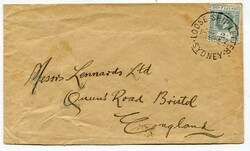 LOOSE SHIP LETTER
SYDNEY
Messrs Lennards Ltd
Queens Road Bristol
England